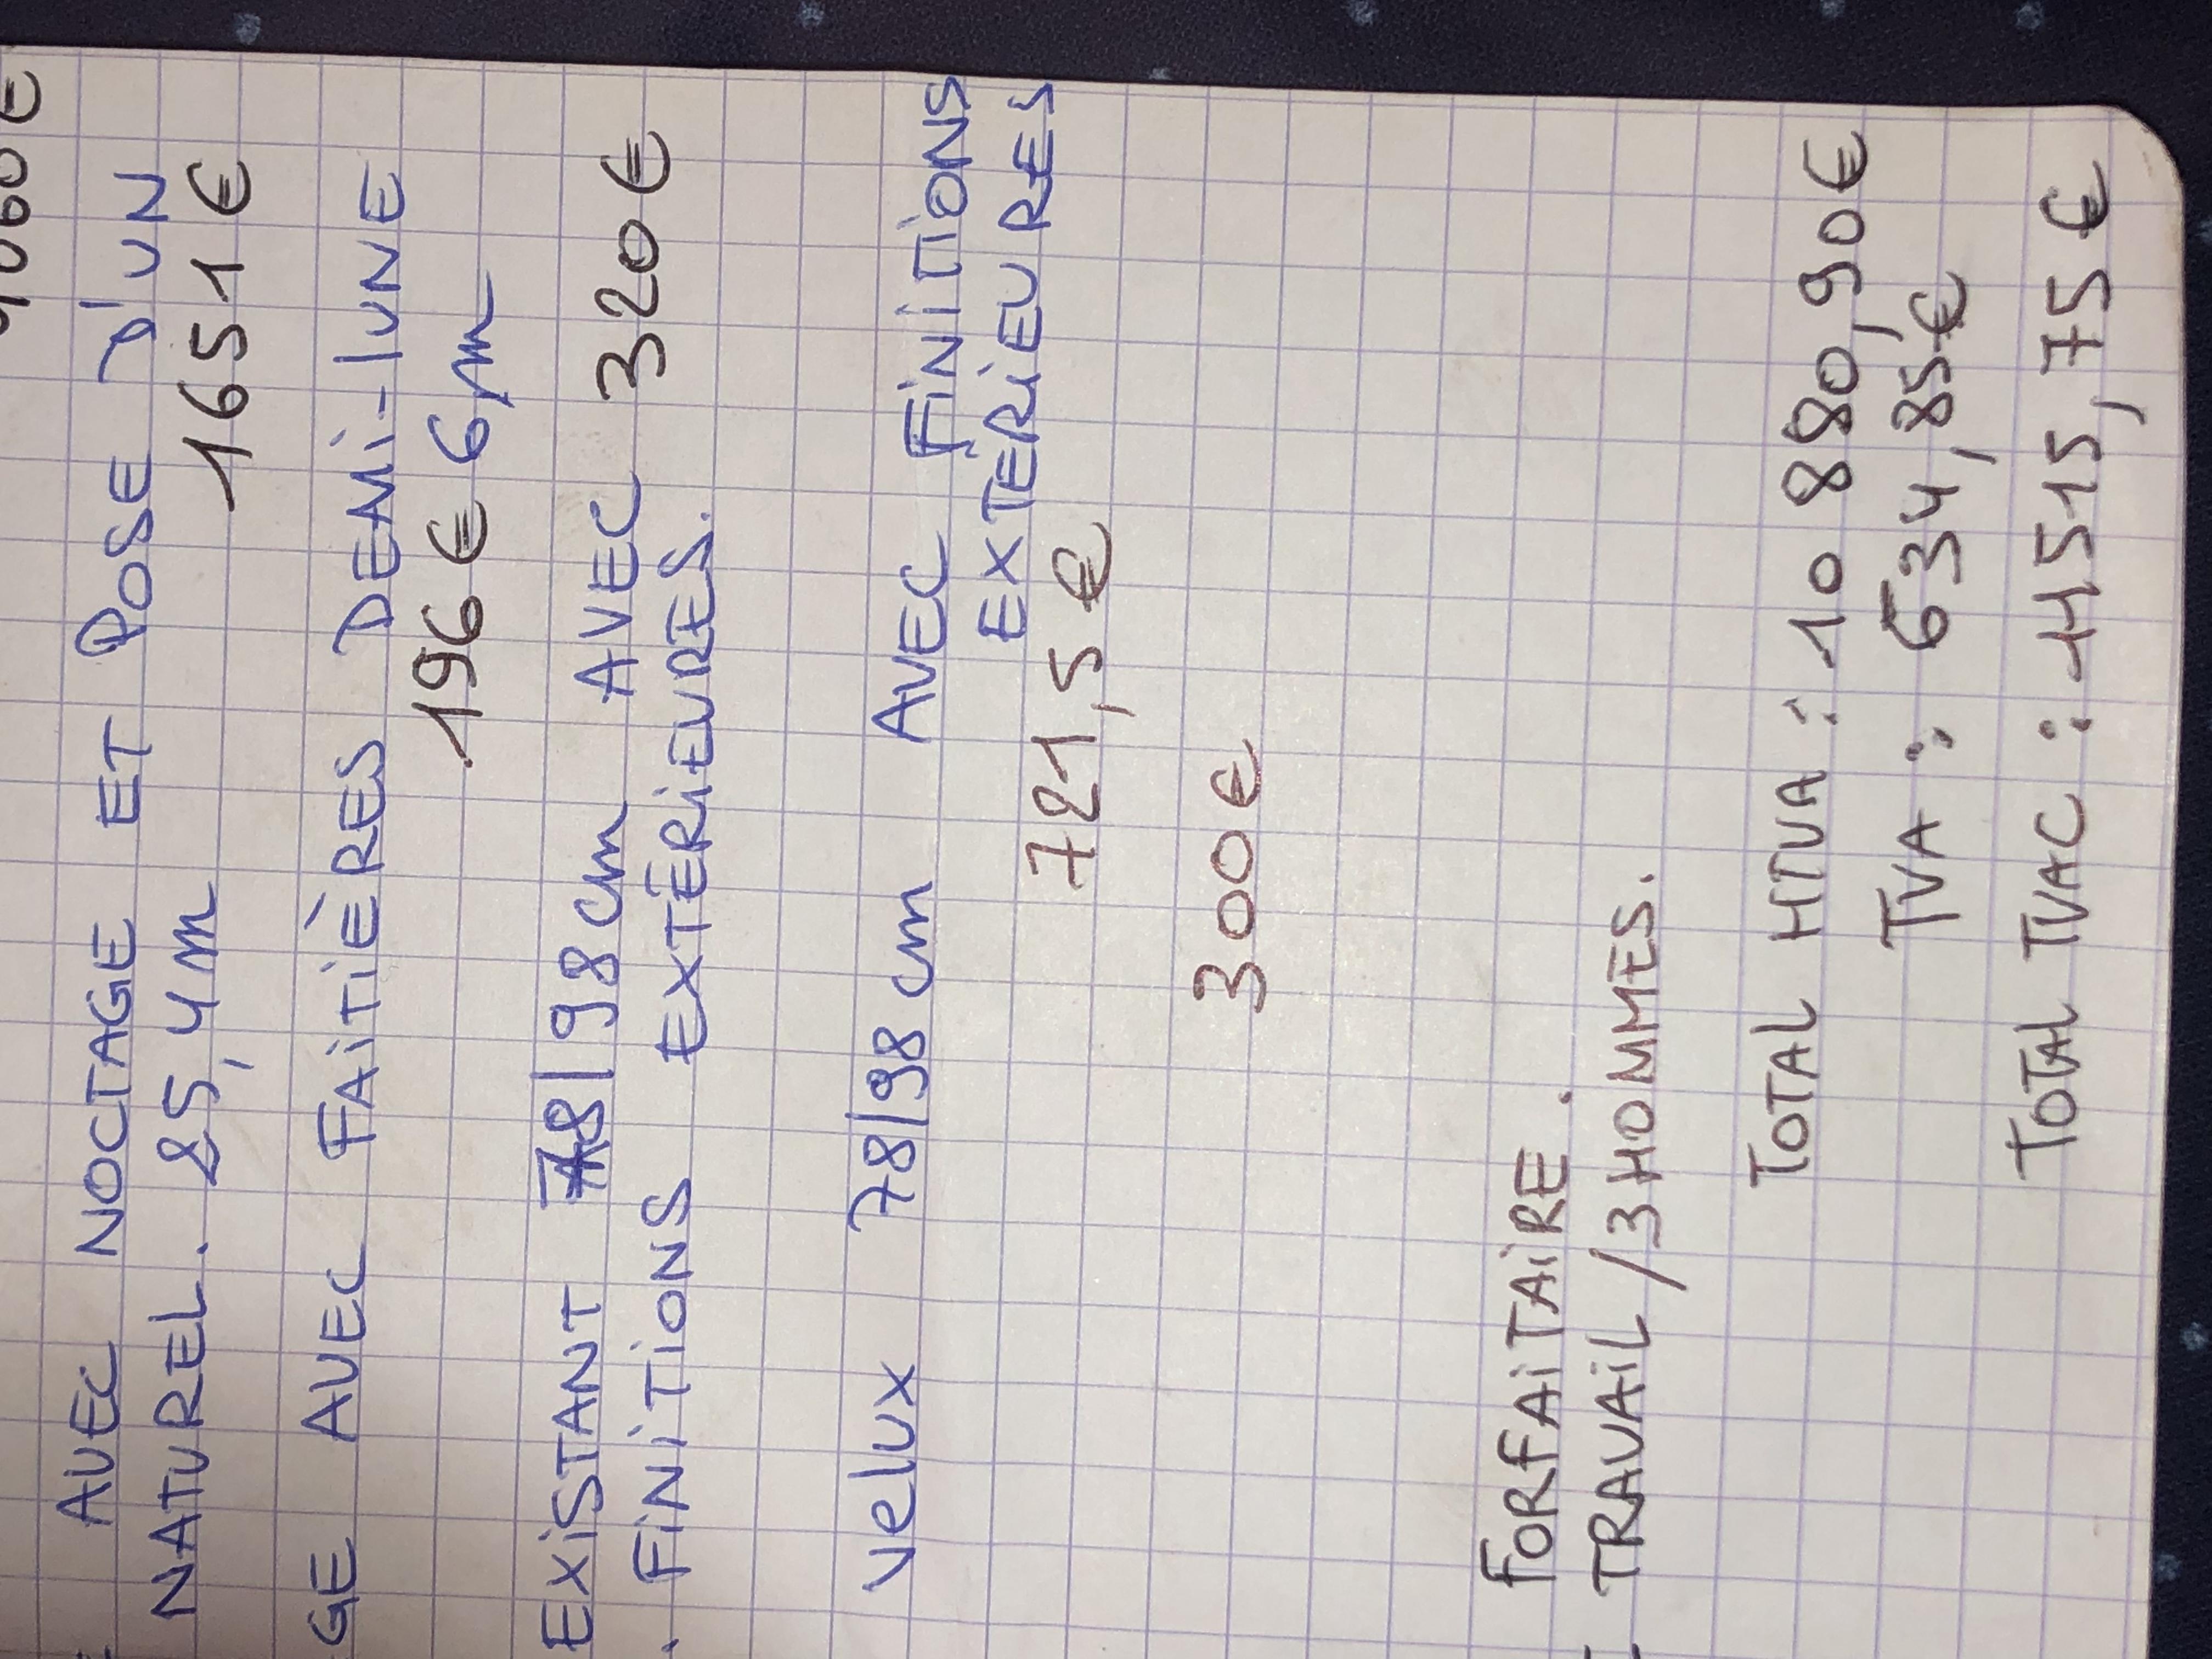 AVEC NOCTAGE ET POSE D'UN
NATUREL. 25,4m 1651€
GE AVEC FAITIÈRES DEMI-lUNE
196€ 6m
EXISTANT 78/98cm AVEC 320€
. FINITIONS EXTÉRIEURES.
Velux 78/98cm AVEC FINITIONS
EXTÉRIEURES
721,5€
300€
FORFAITAIRE.
TRAVAIL/3HOMMES.
TOTAL HTVA: 10 880,90€
TVA: 634,85€
TOTAL TVAC: 11515,75€